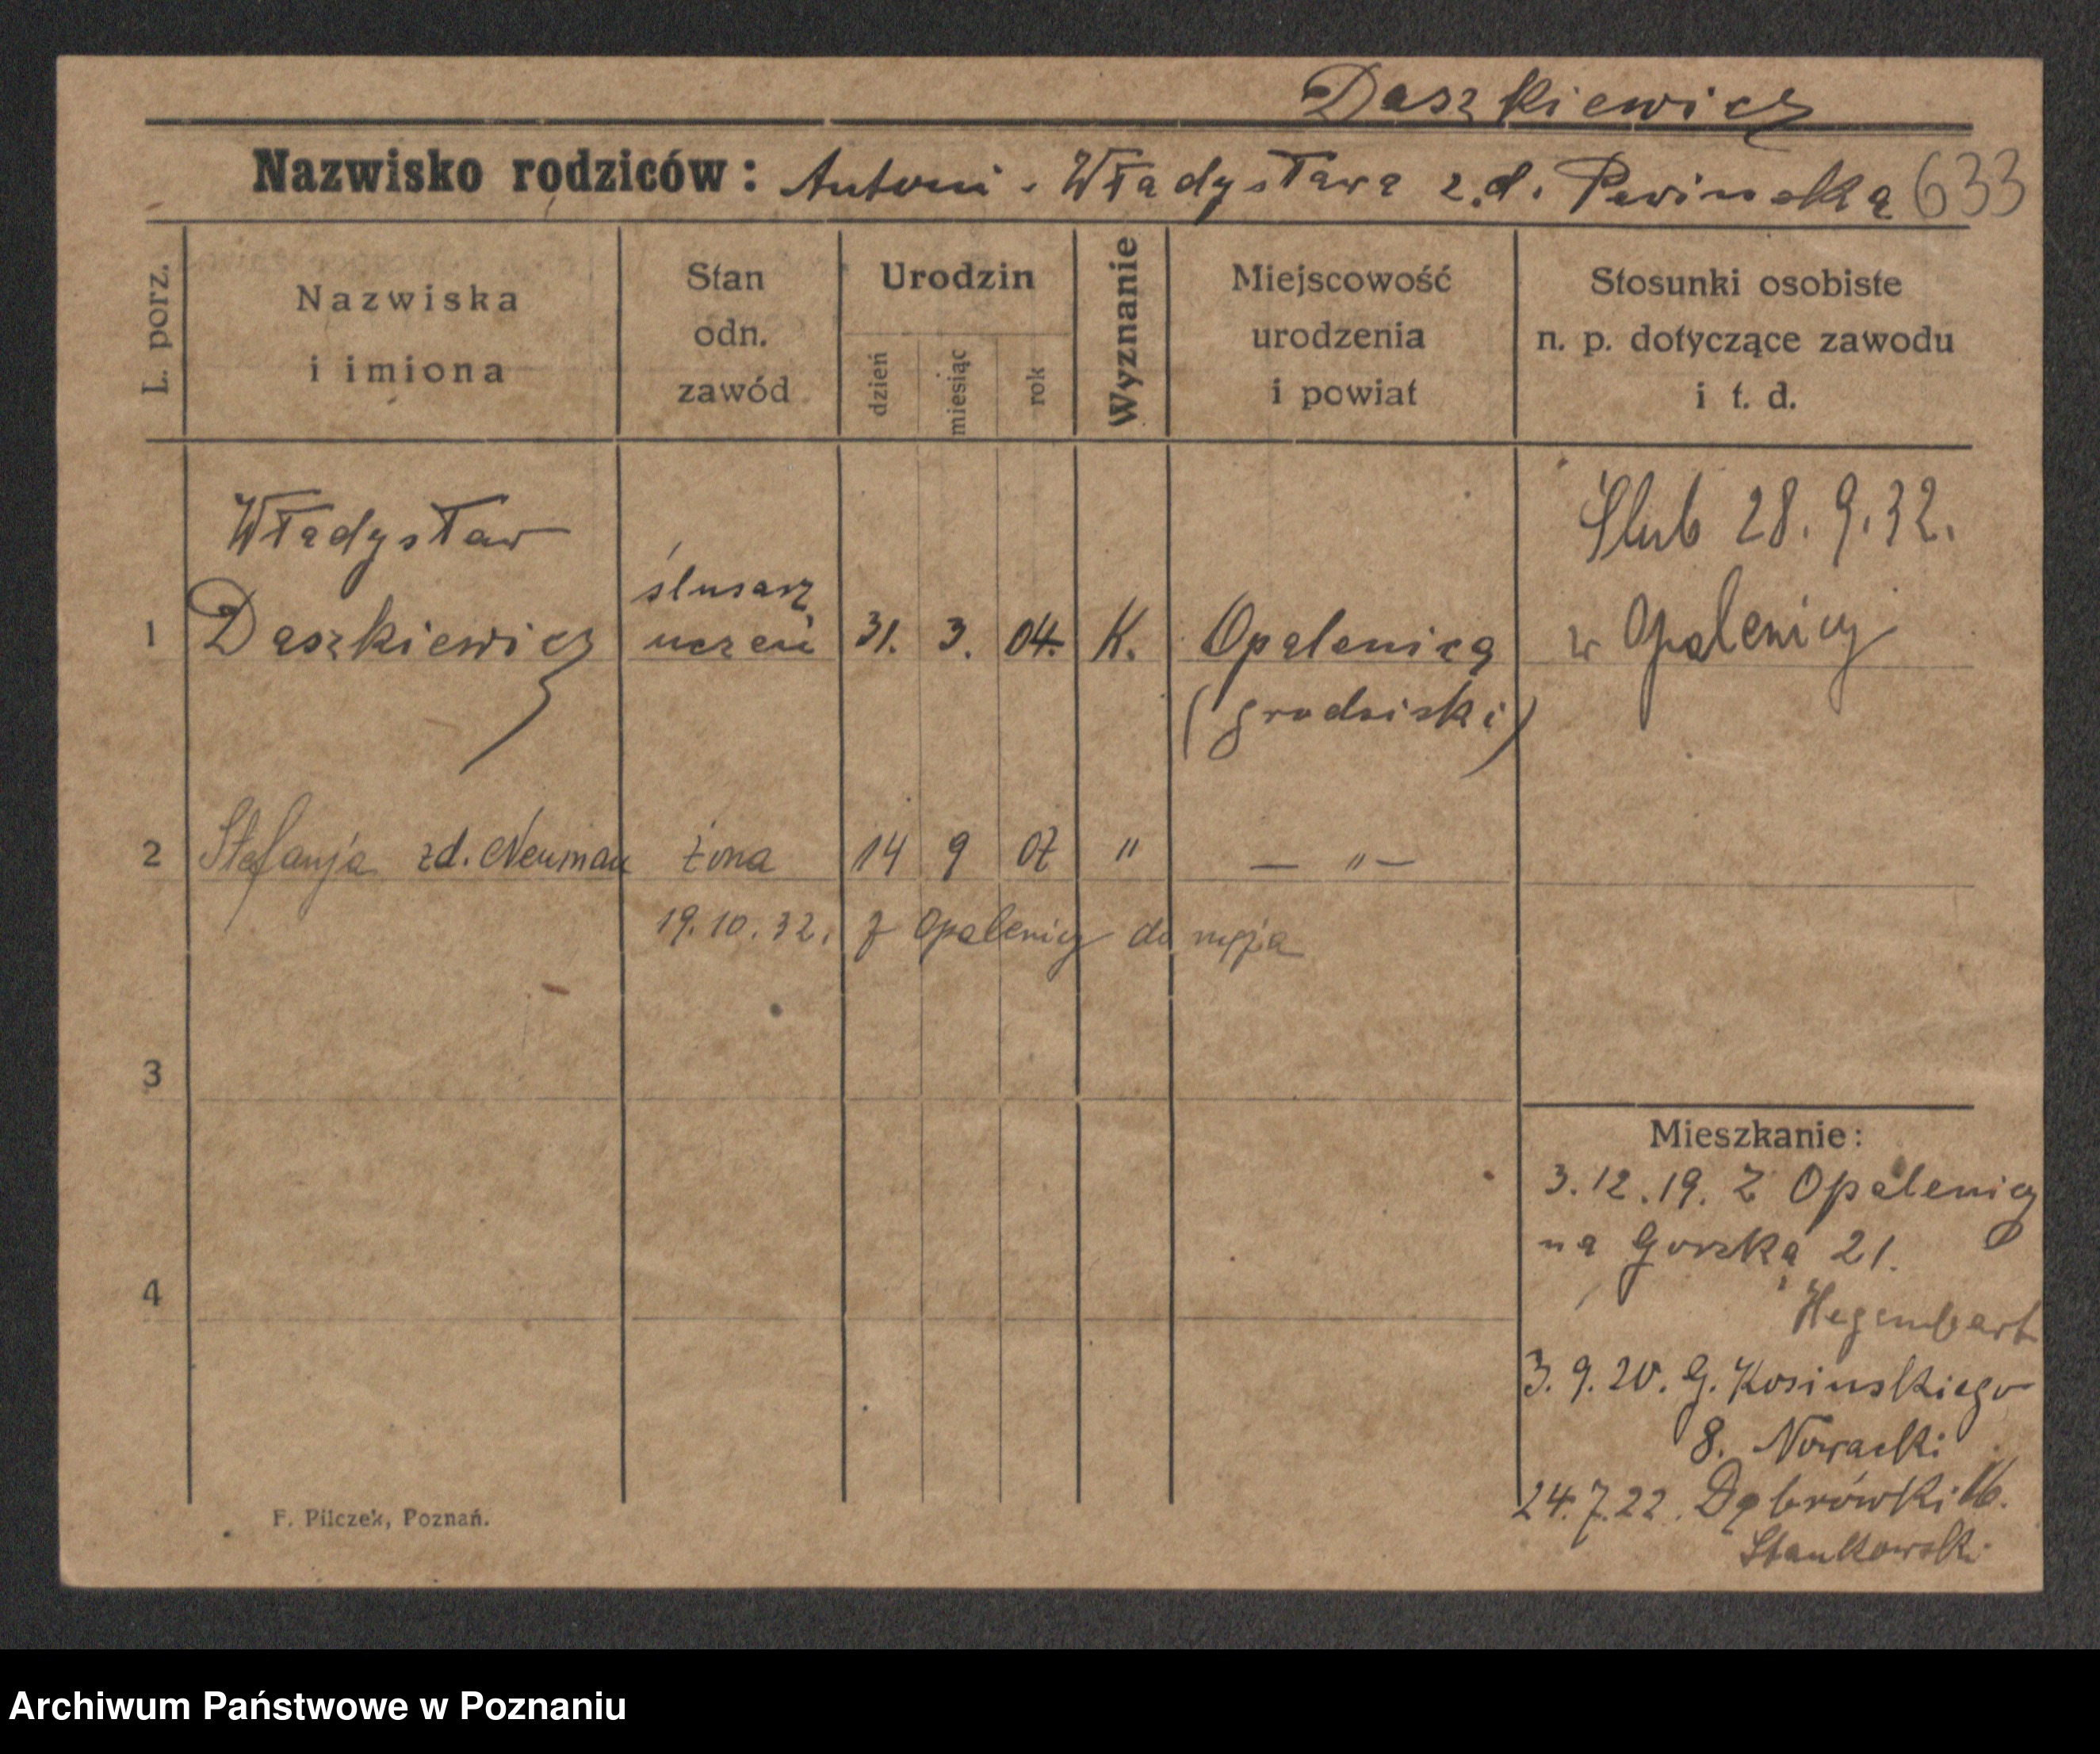 Daszkiewicz
Nazwisko rodziców: Antoni - Władysława z.d. 633
L. porz.
Nazwiska
i imiona
Stan
odn.
zawód
Urodzin
dzień
miesiąc
rok
Wyznanie
Miejscowość
urodzenia
i powiat
Stosunki osobiste
n. p. dotyczące zawodu
i t. d.
Władysław
ślusarz
1 Daszkiewicz uczeń 31. 3. 04. K. Opalenica
(grodziski)
Ślub 28.9.32.
w Opalenicy
2 Stefanja zd. Neuman żona 14 9 07 " — " —
19.10.32. z Opalenicy do męża
3
4
Mieszkanie:
3.12.19. Z Opalenicy
na Gorzka 21.
Hegenbart
3.9.20. G. Kosinskiego
8. Nowacki
24.7.22. Dąbrówki 16.
Stankowski
F. Pilczek, Poznań.
Archiwum Państwowe w Poznaniu